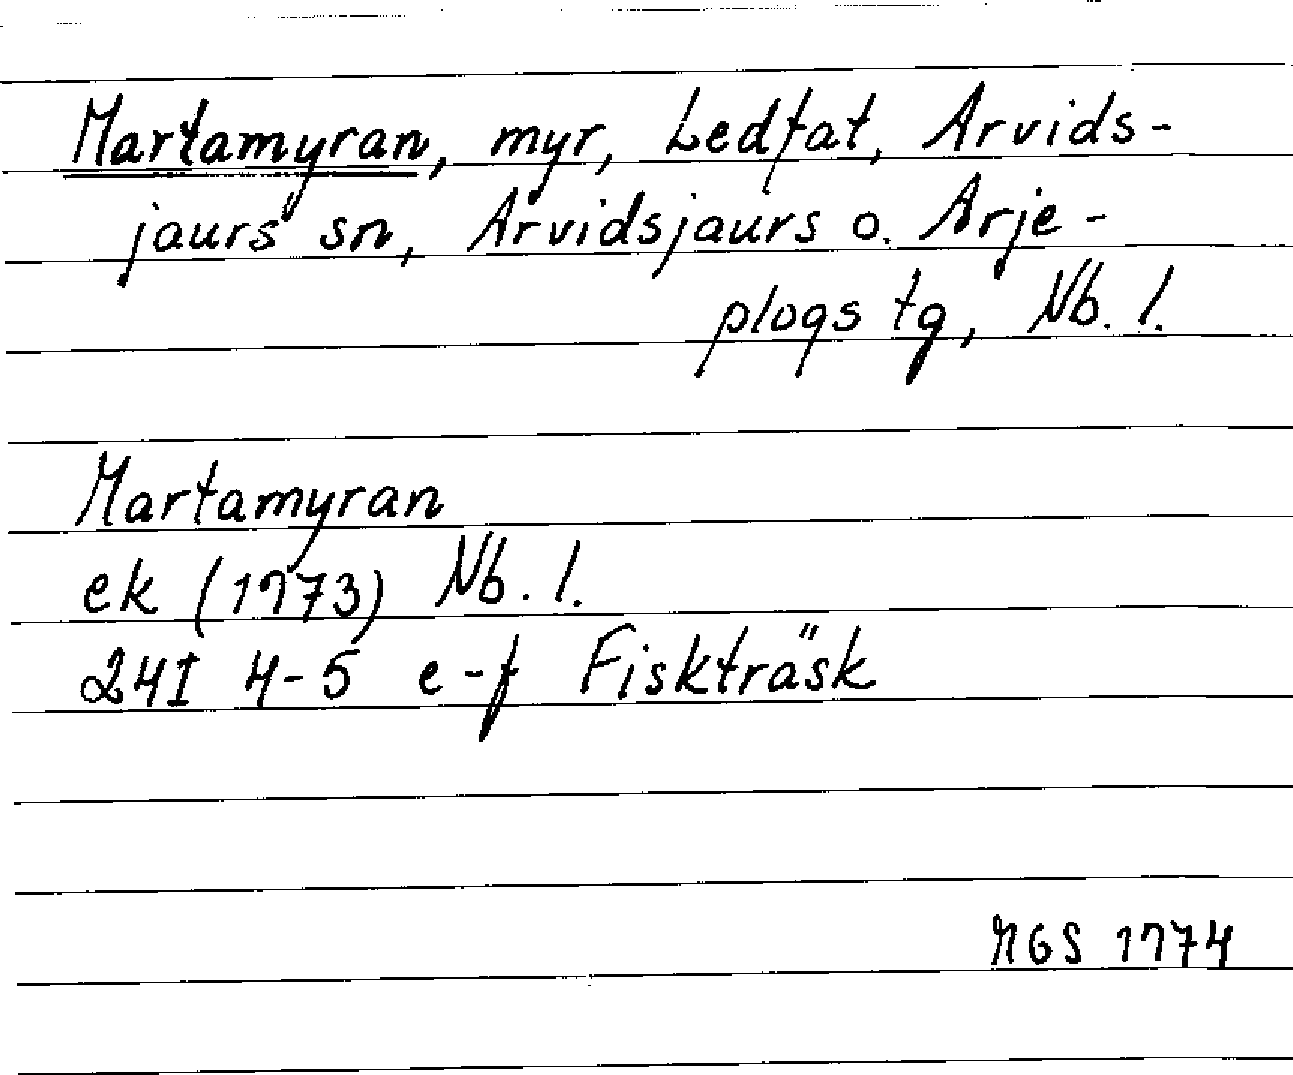 Martamyran, myr, Ledfat, Arvids-
jaurs sn, Arvidsjaurs o. Arje-
plogs tg, Nb. l.
Martamyran
ek (1973) Nb. l.
24I 4-5 e-f Fiskträsk
MGS 1974